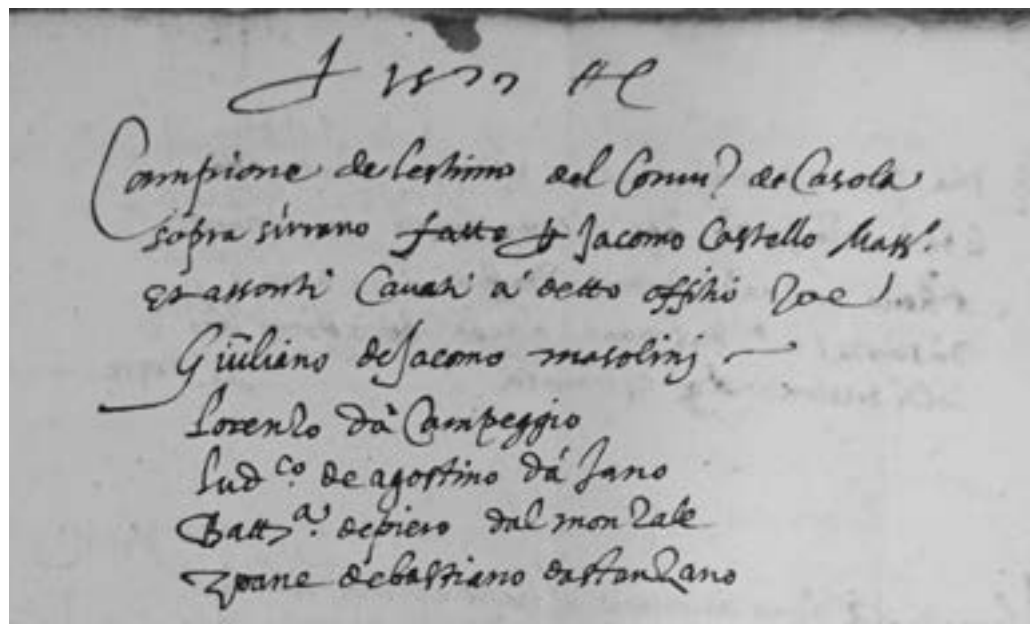 1577
Campione de lestimo del Comu˜ de Casola
sopra sirrano fatto p Jacomo Castello Mass.
et assonti Cavati a detto offitio Zoe
Giuliano de Jacomo masolinj
Lorenzo dà Campeggio
Lud.co de agostino dá Jano
Batt.a de piero dal monzale
Zoane de bastiano da stanzano